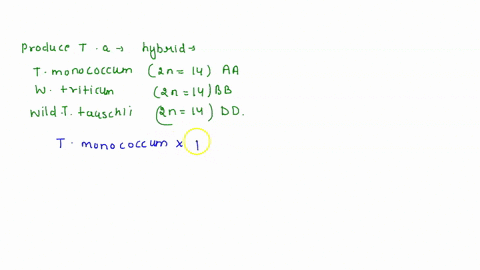 Produce T.a → hybrid →
T. monococcum (2n = 14) AA
W. triticum (2n = 14) BB
Wild T. tauschii (2n = 14) DD.
T. monococcum x